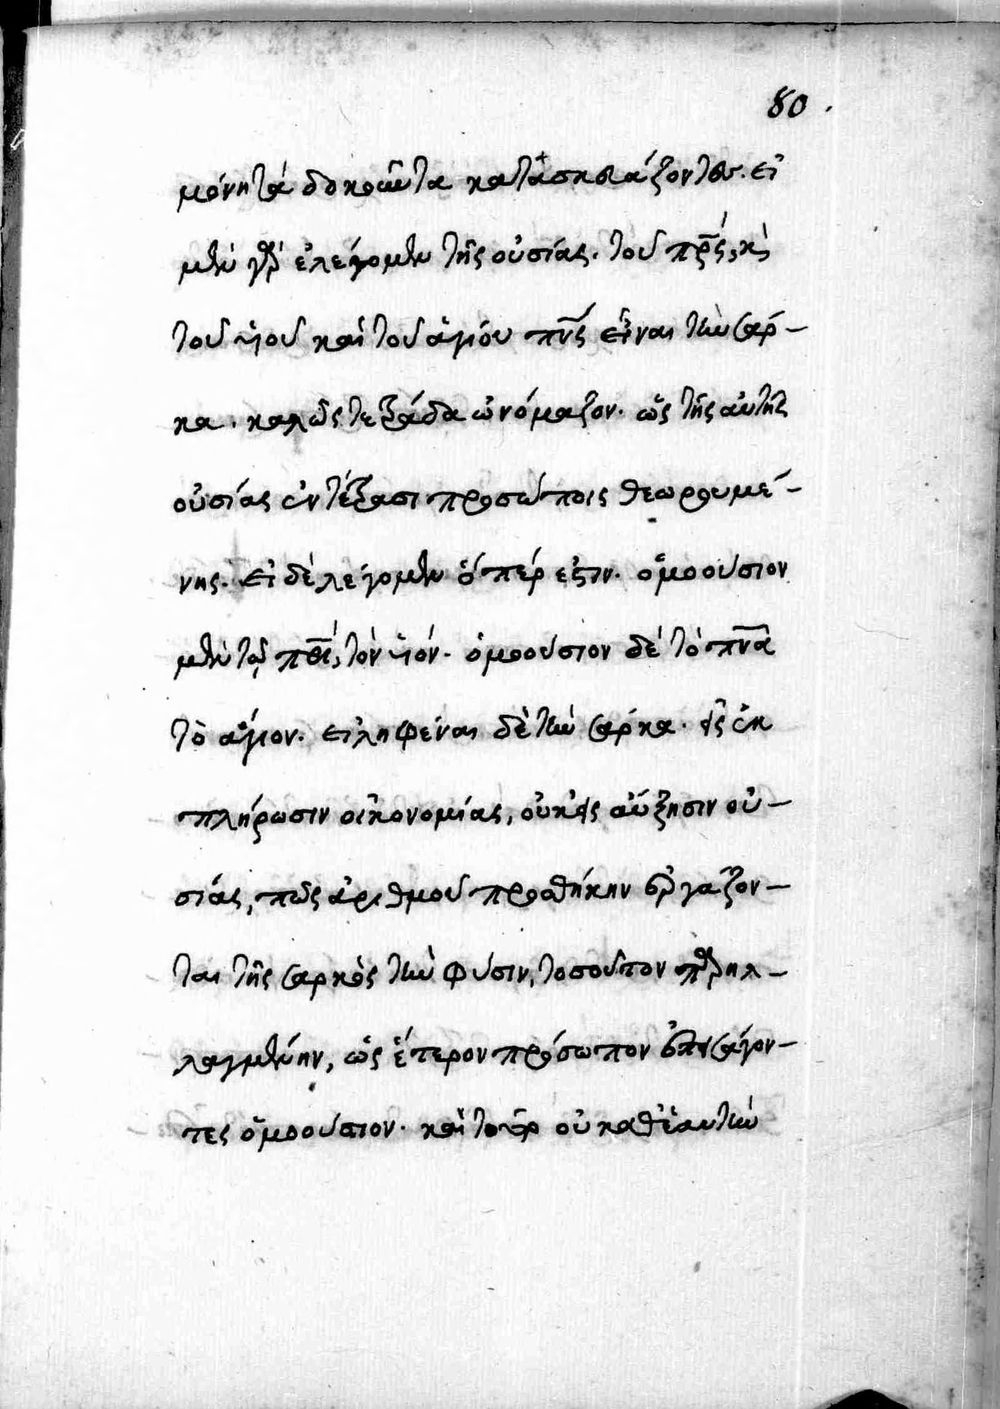 80.
μόνη τὰ δοκοῦντα κατασκευάζοντες. εἰ
μὲν γὰρ ἐλέγομεν τῆς οὐσίας. τοῦ πρ̅ς, κὶ
τοῦ υἱοῦ καὶ τοῦ ἁγίου πν̅ς εἶναι τὴν σάρ–
κα. καλῶς τετράδα ὠνόμαζον. ὡς τῆς αὐτῆς
οὐσίας ἐν τέτρασι προσώποις θεωρουμέ–
νης. εἰ δὲ λέγομεν ὅπερ ἐστιν. ὁμοούσιον
μὲν τῷ πρ̅ι, τὸν υἱόν. ὁμοούσιον δὲ τὸ πν̅α
τὸ ἅγιον. εἰληφέναι δὲ τὴν σάρκα. εἰς ἐκ
πλήρωσιν οἰκονομίας, οὐκ εἰς αὔξησιν οὐ–
σίας, πῶς ἀριθμοῦ προσθήκην ἐργάζον–
ται τῆς σαρκὸς τὴν φύσιν, τοσοῦτον παρηλ–
λαγμένην, ὡς ἕτερον πρόσωπον ἐπεισάγον–
τες ὁμοούσιον. καὶ οὐ καθ' ἑαυτὴν